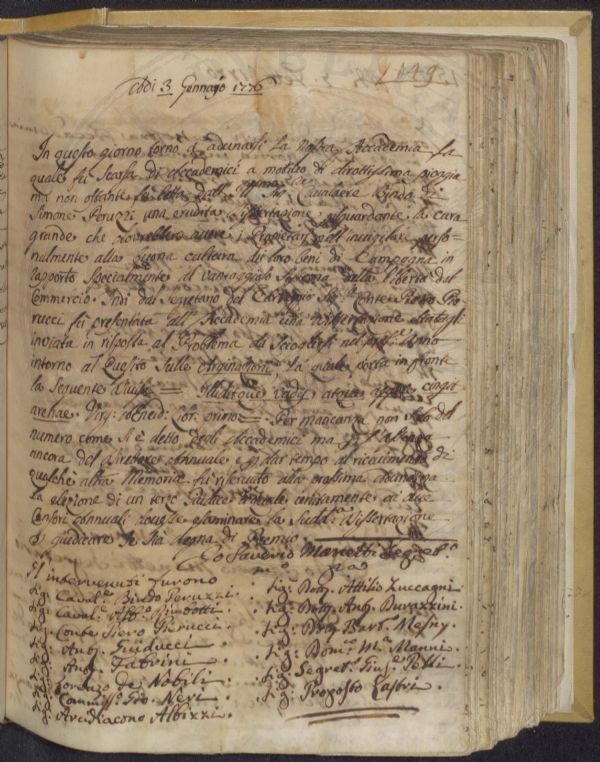 149
Adi 3. Gennajo 1776
In questo giorno tornò ad adunarsi la nostra Accademia la
quale fu scarsa di Accademici a motivo di dirottissima pioggia
ma non ostante fu letta dall' Cavaliere Bindo
Simone Peruzzi una erudita Dissertazione riguardante la cura
grande che dovrebbero avere i Proprietarj nell' invigilare perso-
nalmente alla buona cultura dei loro Beni di Campagna in
rapporto specialmente al vantaggio dalla libertà del
Commercio. Indi dal Segretario del Carteggio Sig. Conte Piero Pie-
rucci fu presentata all' Accademia una Dissertazione statagli
inviata in risposta al Problema da sciogliersi nel Anno
intorno al Quesito sulle Arginazioni la quale porta in fronte
la seguente Divisa = cinga
arenae. Virg: Aeneid: Lib. primo =. Per mancanza non solo del
numero come si è detto degli Accademici ma
ancora del Direttore Annuale e per dar tempo al ricevimento di
qualche altra Memoria fu riservato alla prossima Adunanza
la elezione di un terzo Giudice unitamente ai due
Censori Annuali esaminare la sudd.ª Dissertazione
e giudicare se sia degna di Premio
Io Saverio Manetti Segret.º
m.º pp.ª
Gl' intervenuti furono
Sig: Caval.e Bindo Peruzzi.
Sig: Caval.e
Sig: Conte Piero Pierucci.
Sig: Ant.º Giuducci.
Sig: Ant.º Fabrini.
Sig: Lorenzo de Nobili.
Sig: Commiss.º Gio. Neri.
Sig: Arcidiacono Albizzi.
Sig: Dott. Attilio Zuccagni.
Sig: Dott. Ant.º Durazzini.
Sig: Dott. Bart.º Mesny.
Sig: Dom.co M.ª Manni.
Sig: Segret.º Gius.e Pelli.
Sig: Proposto Lastri.